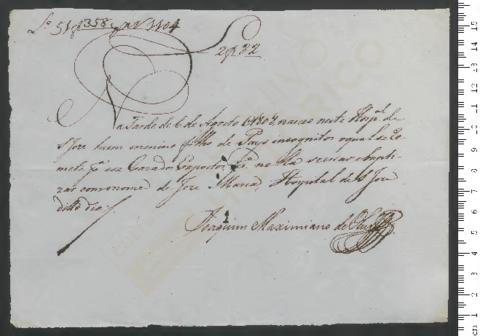 Lº 51 f 358 N 3104
2 f 32
Na Tarde de 6 de Agosto 1802 nasceo neste Hospl de
S Joze hum menino filho de Pays incognitos o qual se Re
mete pª ssa Caza dos Expostos pª na Sua receiar e bapti
zar com o nome de Joze Maria, Hospital de S Joze
ditto dia
Joaquim Maximiano de